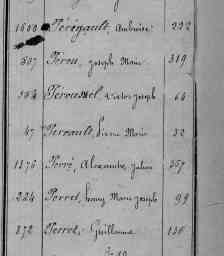 1600 Pérégault, Ambroise 222
507 Pérou, Joseph Marie 319
564 Peroussel, Victor Joseph 64
47 Perrault, Pierre Marie 32
1176 Perré, Alexandre Julien 357
224 Perret, Marie Joseph 99
872 Perret, Guillaume